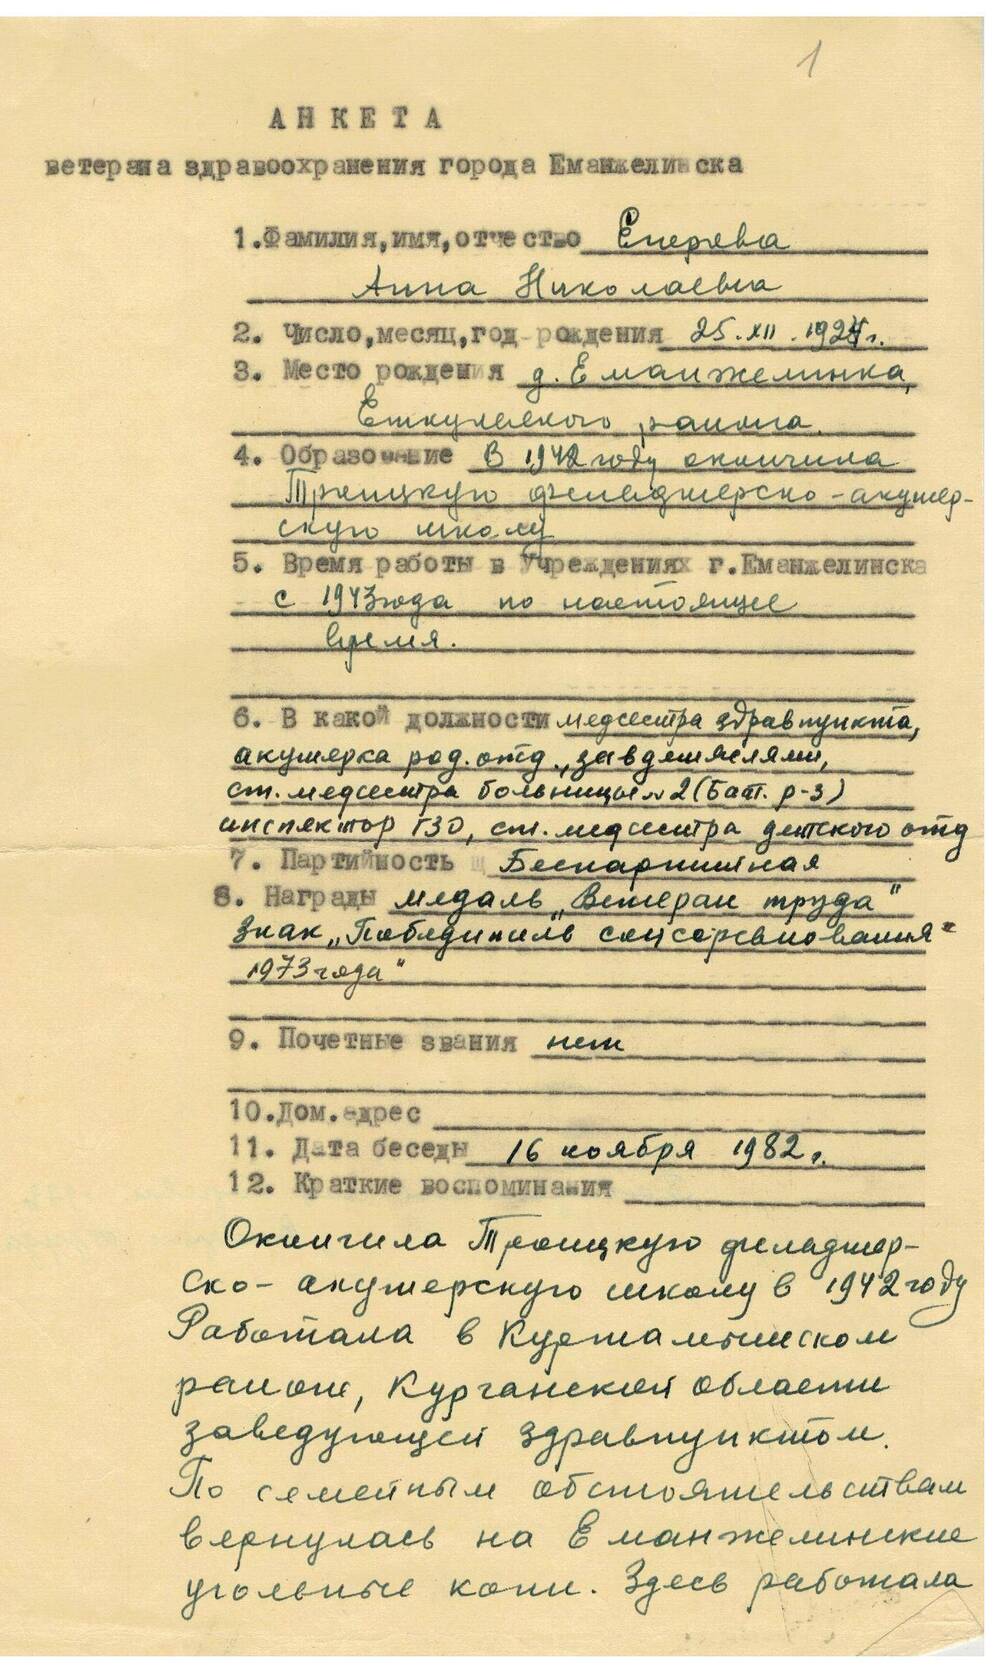 1
АНКЕТА
ветерана здравоохранения города Еманжелинска
1.Фамилия,имя,отчество
Анна Николаевна
2. Число,месяц,год рождения 25.XII.1924г.
3. Место рождения д. Еманжелинка,
Еткульского района.
4. Образование В 1942 году окончила
Троицкую фельдшерско-акушер-
скую школу
5. Время работы в Учреждениях г.Еманжелинска
с 1943 года по настоящее
время.
6. В какой должности медсестра здравпункта,
акушерка род. отд., зав.д/яслями,
ст. медсестра больницы №2 (Бат. р-з)
инспектор ГЗО, ст. медсестра детского отд
7. Партийность Беспартийная
8. Награды медаль „Ветеран труда"
Знак „Победитель соцсоревнования"
1973 года"
9. Почетные звания нет
10.Дом.адрес
11. Дата беседы 16 ноября 1982 г.
12. Краткие воспоминания
Окончила Троицкую фельдшер-
ско-акушерскую школу в 1942 году
Работала в Куртамышском
районе, Курганской области
заведующей здравпунктом.
По семейным обстоятельствам
вернулась на Еманжелинские
угольные копи. Здесь работала